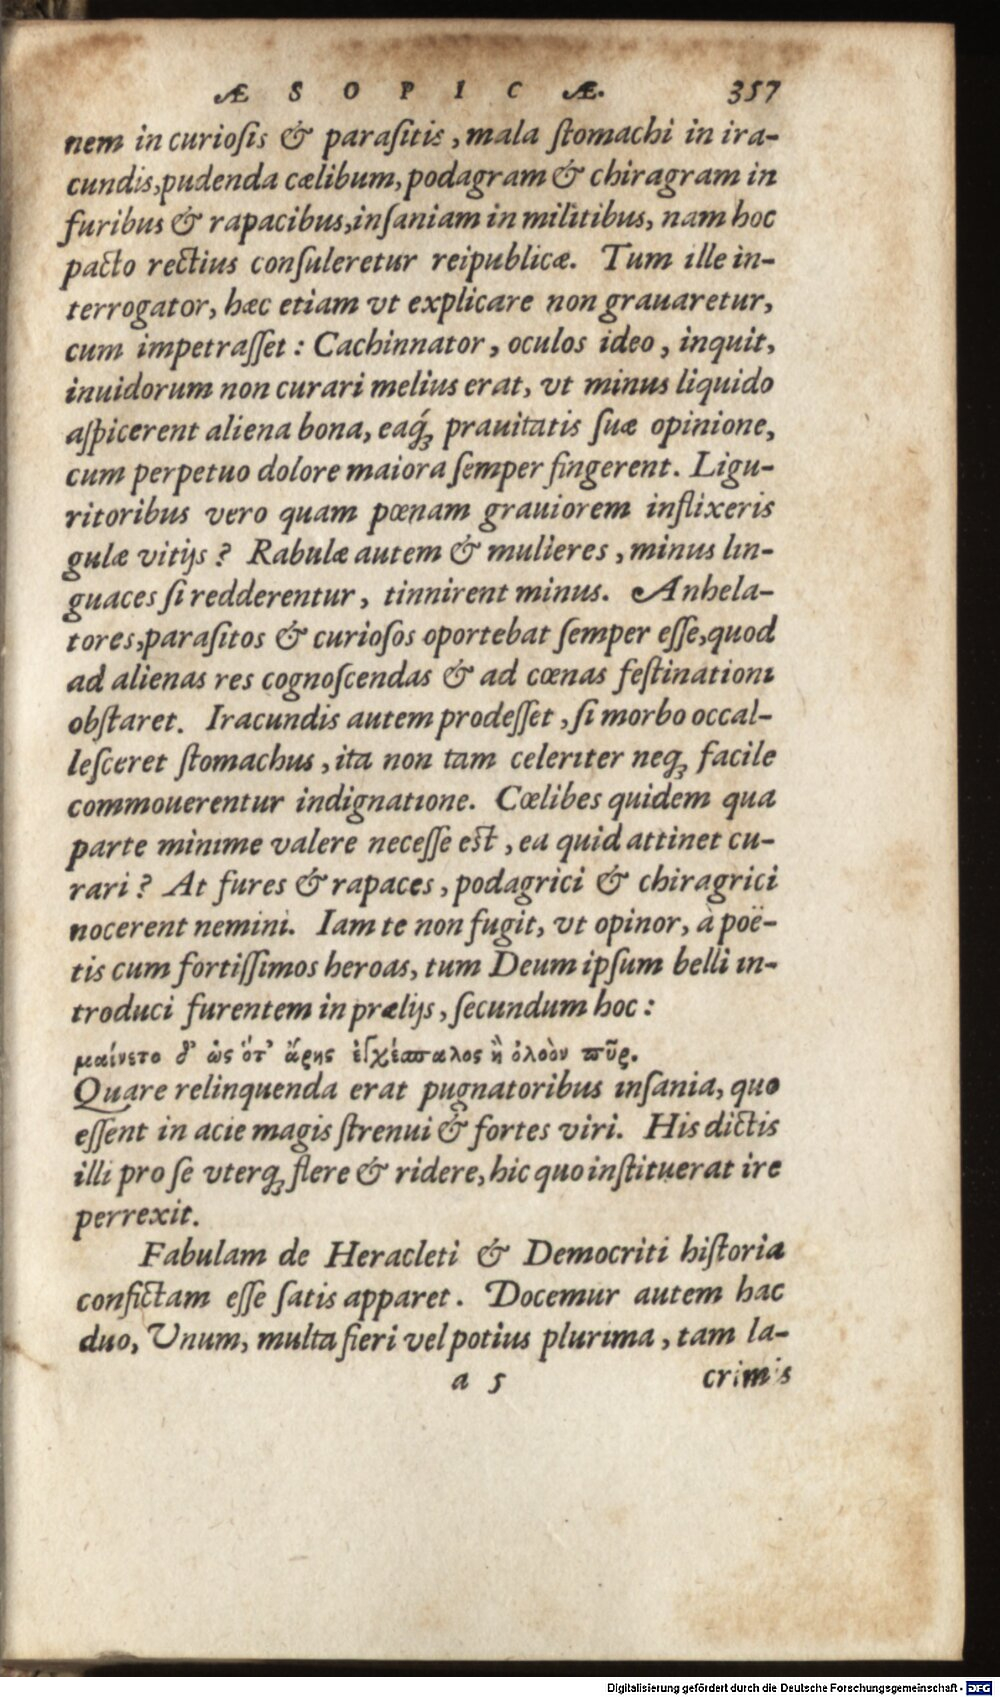 ÆSOPICÆ. 357
nem in curiosis & parasitis, mala stomachi in ira-
cundis, pudenda cælibum, podagram & chiragram in
furibus & rapacibus, insaniam in militibus, nam hoc
pacto rectius consuleretur reipublicæ. Tum ille in-
terrogator, hæc etiam vt explicare non grauaretur,
cum impetrasset: Cachinnator, oculos ideo, inquit,
inuidorum non curari melius erat, vt minus liquido
aspicerent aliena bona, eaq́ꝫ prauitatis suæ opinione,
cum perpetuo dolore maiora semper fingerent. Ligu-
ritoribus vero quam pœnam grauiorem inflixeris
gulæ vitijs? Rabulæ autem & mulieres, minus lin-
guaces si redderentur, tinnirent minus. Anhela-
tores, parasitos & curiosos oportebat semper esse, quod
ad alienas res cognoscendas & ad cœnas festinationi
obstaret. Iracundis autem prodesset, si morbo occal-
lesceret stomachus, ita non tam celeriter neqꝫ facile
commouerentur indignatione. Cœlibes quidem qua
parte minime valere necesse est, ea quid attinet cu-
rari? At fures & rapaces, podagrici & chiragrici
nocerent nemini. Iam te non fugit, vt opinor, à poë-
tis cum fortissimos heroas, tum Deum ipsum belli in-
troduci furentem in prælijs, secundum hoc:
μαίνετο δ' ὡς ὅτ' ἄρης ἐγχέσπαλος ἢ ὀλοὸν πῦρ.
Quare relinquenda erat pugnatoribus insania, quo
essent in acie magis strenui & fortes viri. His dictis
illi pro se vterqꝫ flere & ridere, hic quo instituerat ire
perrexit.
Fabulam de Heracleti & Democriti historia
confictam esse satis apparet. Docemur autem hac
duo, Vnum, multa fieri vel potius plurima, tam la-
a 5 crimis
Digitalisierung gefördert durch die Deutsche Forschungsgemeinschaft - DFG